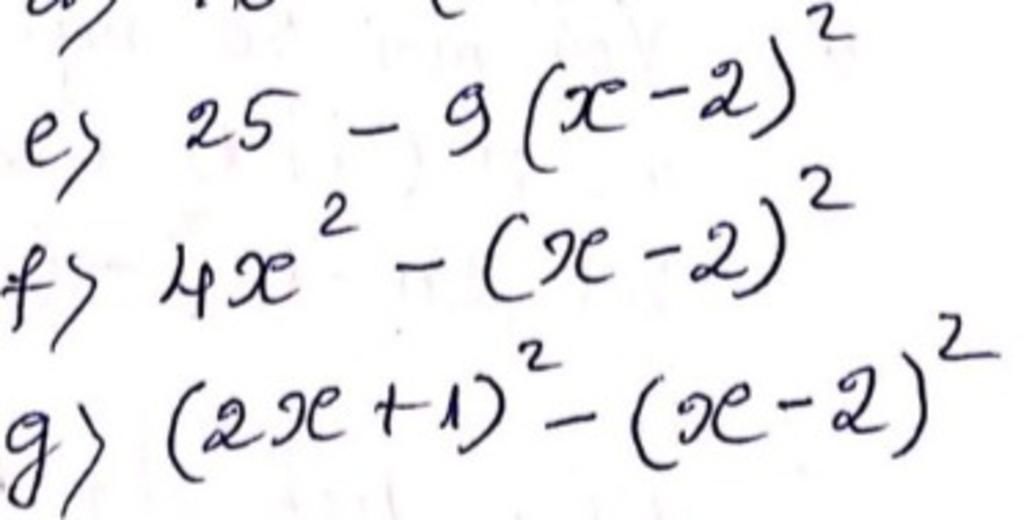 e) 25 - 9(x-2)²
f) 4x² - (x-2)²
g) (2x+1)² - (x-2)²